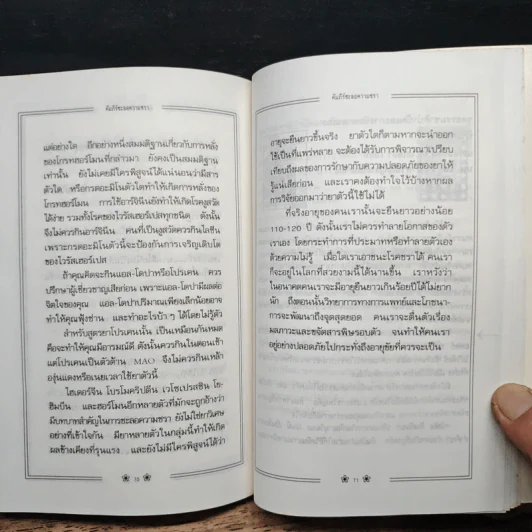 คัมภีร์ชะลอความชรา
แต่อย่างใด อีกอย่างหนึ่งสมมติฐานเกี่ยวกับการหลั่ง
ของโกรทฮอร์โมนที่กล่าวมา ยังคงเป็นสมมติฐาน
เท่านั้น ยังไม่เคยมีใครพิสูจน์ได้แน่นอนว่ามีสาร
ตัวใด หรือกรดอะมิโนตัวใดทำให้เกิดการหลั่งของ
โกรทฮอร์โมน การใช้อาร์จินีนยังทำให้เกิดโรคงูสวัด
ได้ง่าย รวมทั้งโรคของไวรัสเฮอร์เปสทุกชนิด ดังนั้น
จึงไม่ควรกินอาร์จินีน คนที่เป็นงูสวัดควรกินไลซีน
เพราะกรดอะมิโนตัวนี้จะป้องกันการเจริญเติบโต
ของไวรัสเฮอร์เปส
ถ้าคุณคิดจะกินแอล-โดปาหรือโปรเคน ควร
ปรึกษาผู้เชี่ยวชาญเสียก่อน เพราะแอล-โดปามีผลต่อ
จิตใจของคุณ แอล-โดปาปริมาณเพียงเล็กน้อยอาจ
ทำให้คุณฟุ้งซ่าน และทำอะไรบ้าๆ ได้โดยไม่รู้ตัว
สำหรับสูตรยาโปรเคนนั้น เป็นเหมือนกันหมด
คือจะทำให้คุณมีอารมณ์ดี ดังนั้นควรกินในตอนเช้า
แต่โปรเคนเป็นตัวต้าน MAO จึงไม่ควรกินเหล้า
องุ่นแดงหรือเนยเวลาใช้ยาตัวนี้
ไฮเดอร์จีน โบรโมคริปตีน เวโซเปรสซิน โย-
ฮิมบีน และฮอร์โมนอีกหลายตัวที่มักจะถูกอ้างว่า
มีบทบาทสำคัญในการชะลอความชรา ยังไม่ใช่ยาวิเศษ
อย่างที่เข้าใจกัน มียาหลายตัวในกลุ่มนี้ทำให้เกิด
ผลข้างเคียงที่รุนแรง และยังไม่มีใครพิสูจน์ได้ว่า
10
คัมภีร์ชะลอความชรา
อายุจะยืนยาวขึ้นจริง ยาตัวใดก็ตามหากจะนำออก
ใช้เป็นที่แพร่หลาย จะต้องได้รับการพิจารณาเปรียบ
เทียบถึงผลของการรักษากับความปลอดภัยของยาให้
รู้แน่เสียก่อน และเราคงต้องทำใจไว้บ้างหากผล
การวิจัยออกมาว่ายาตัวนี้ใช้ไม่ได้
ที่จริงอายุของคนเรานั้นจะยืนยาวอย่างน้อย
110-120 ปี ดังนั้นเราไม่ควรทำลายโอกาสของตัว
เราเอง โดยกระทำการที่ประมาทหรือทำลายตัวเอง
ด้วยความไม่รู้ เมื่อใดเราเอาชนะโรคชราได้ คนเรา
ก็จะอยู่ในโลกที่สวยงามนี้ได้นานขึ้น เราหวังว่า
ในอนาคตคนเราจะมีอายุยืนยาวเกินร้อยปีได้ไม่ยาก
นัก ถึงตอนนั้นวิทยาการทางการแพทย์และโภชนา-
การจะพัฒนาถึงจุดสุดยอด คนเราจะตื่นตัวเรื่อง
มลภาวะและขจัดสารพิษรอบตัว จนทำให้คนเรา
อยู่อย่างปลอดภัยไปกระทั่งถึงอายุขัยที่ควรจะเป็น
11